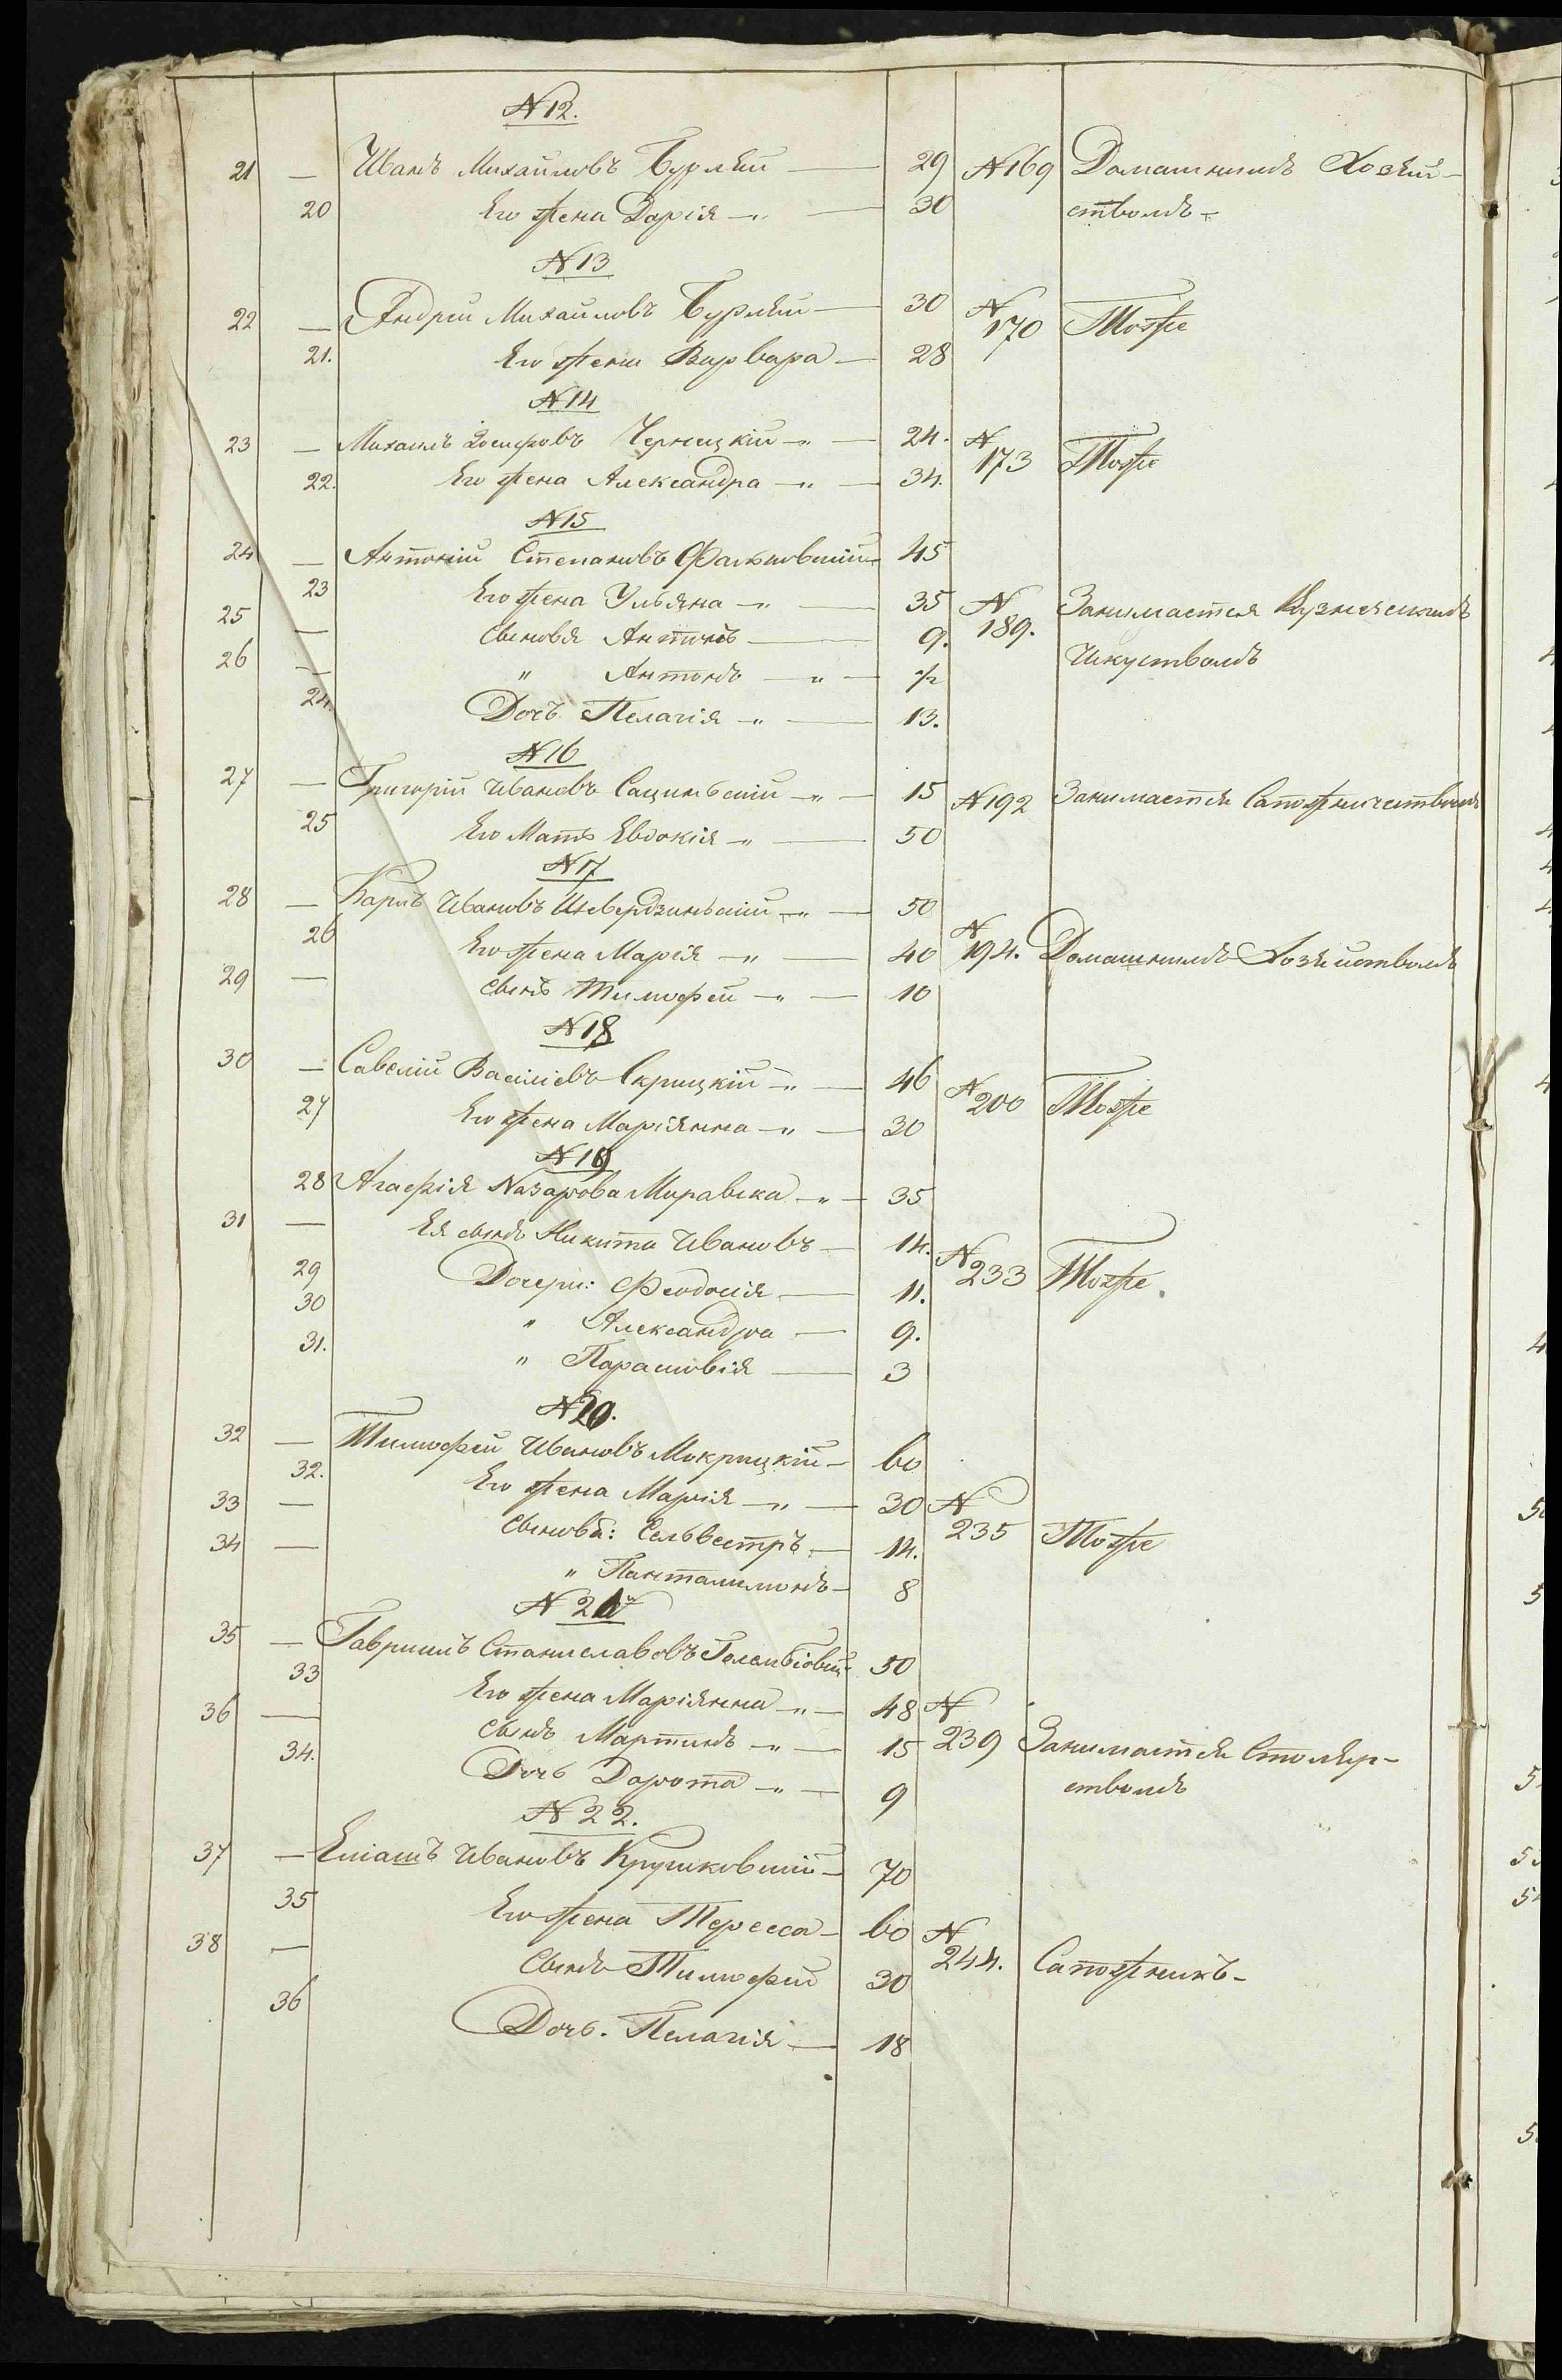 N 12.
21 — Иванъ Михаиловъ Бурлѣй — 29 N 169 Домашнимъ Хозяй-
20 Его жена Дарія —„— 30 ствомъ -
N 13
22 — Андрей Михаиловъ Бурлѣй — 30 N 170 Тоже
21. Его жена Варвара — 28
N 14
23 — Михаилъ Іосифовъ Чернецкій —„— 24. N 173 Тоже
22. Его жена Александра —„— 34.
N 15
24 — Антоній Степановъ Фальковскій — 45
23 Его жена Ульяна —„— 35 N 189. Занимается Кузнеческимъ
25 — Сыновя Антонъ — 9. Искуствомъ
26 — „ Антонъ —„— 7
24. Дочь Пелагія —„— 13.
N 16
27 — Григорій Ивановъ Сацинскій —„— 15 N 192 Занимается Сапожничествомъ
25 Его Мать Евдокія —„— 50
N 17
28 — Карлъ Ивановъ —„— 50
26 Его жена Марія —„— 40 N 194. Домашнимъ Хозяйствомъ
29 — сынъ Тимофей —„— 10
N 18
30 — Савелій Василіевъ Скрицкій —„— 46 N 200 Тоже
27 Его жена Маріянна —„— 30
N 19
28 Агафія Назарова Муравска —„— 35
31 — Ея сынъ Никита Ивановъ — 14. N 233 Тоже.
29 Дочери: Феодосія — 11.
30 „ Александра — 9.
31. „ Парасковія — 3
N 20.
32 — Тимофей Ивановъ Мокрицкій — 60
32. Его жена Марія —„— 30 N 235 Тоже
33 — Сыновя: Сельвестръ — 14.
34 — „ Панталимонъ — 8
N 21
35 — Гавриилъ Станиславовъ 50
33 Его жена Маріянна —„— 48 N 239 Занимается Столяр-
36 — сынъ Мартинъ —„— 15 ствомъ
34. Дочь Дарота —„— 9
N 22.
37 — Еліашъ Ивановъ Крушковскій — 70
35 Его жена Тересса — 60 N 244. Сапожникъ -
38 — Сынъ Тимофей 30
36 Дочь. Пелагія — 18